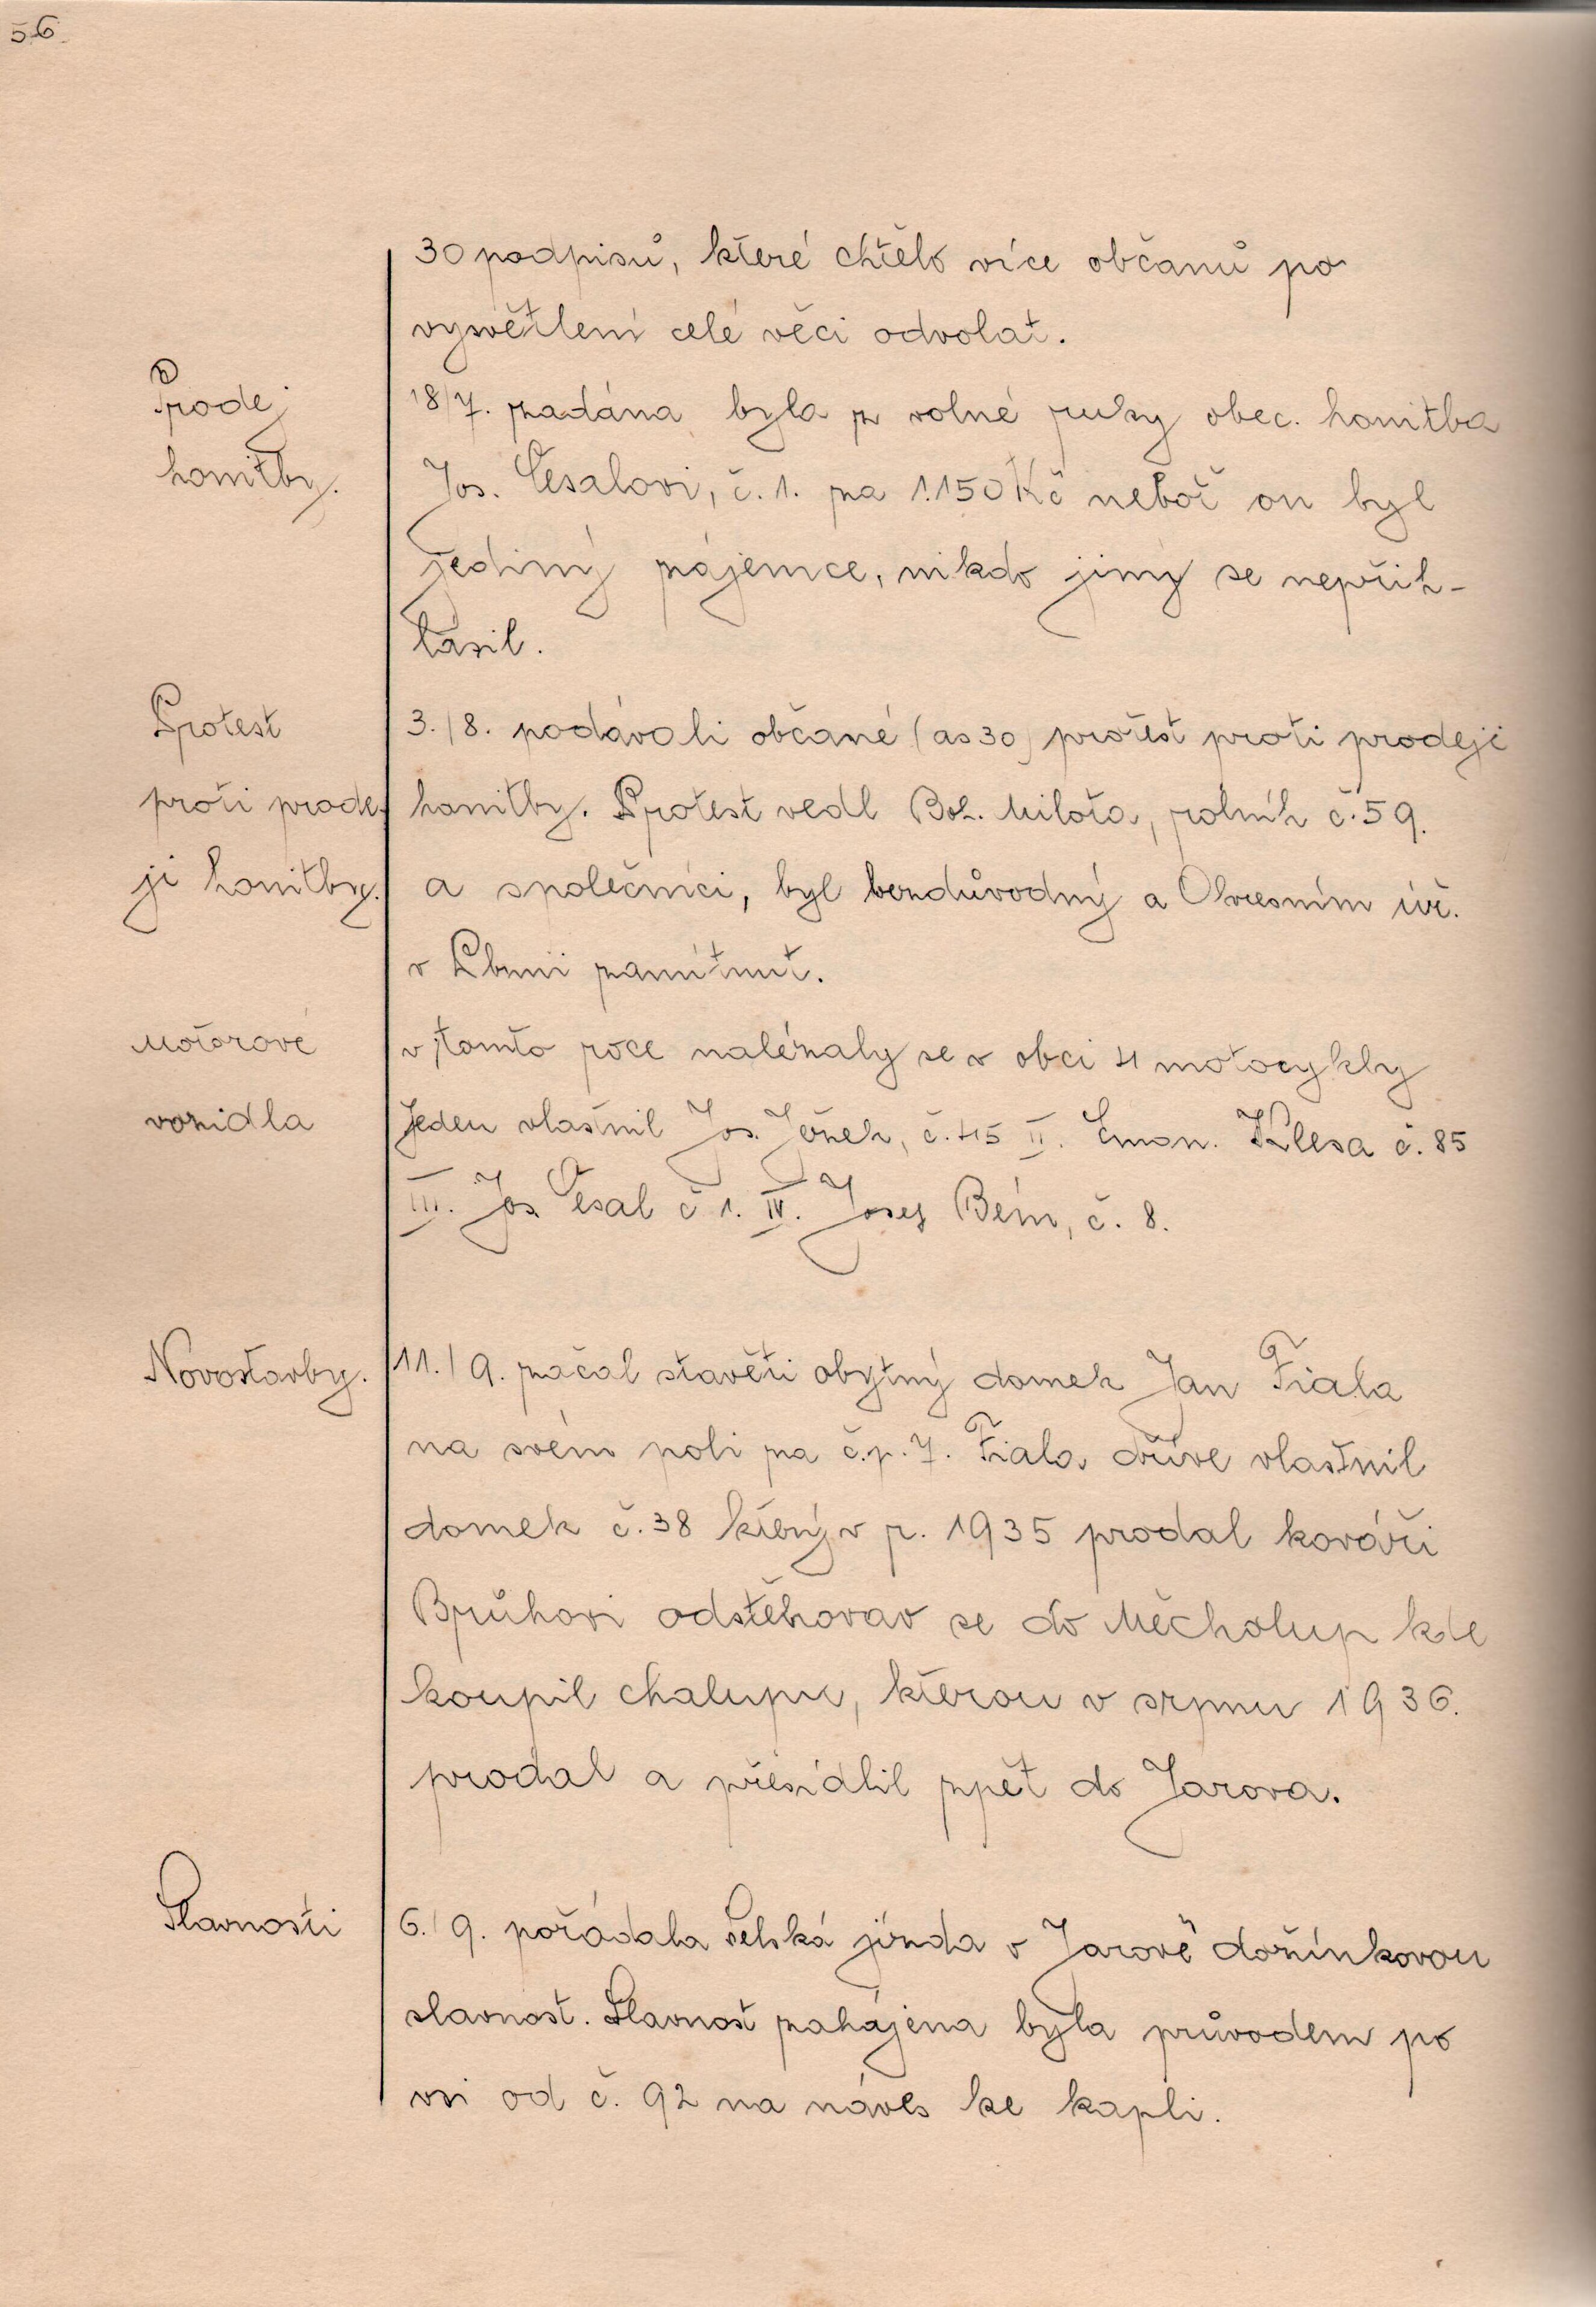 56
30 podpisů, které chtělo více občanů po
vysvětlení celé věci odvolat.
Prodej
honitby.
18/7. zadána byla z volné ruky obec. honitba
Jos. Česalovi, č. 1. za 1.150 Kč neboť on byl
jediný zájemce, nikdo jiný se nepřih-
lásil.
Protest
proti prode-
ji honitby.
3./8. podávali občané (as 30) protest proti prodeji
honitby. Protest vedl Boh. Milota, rolník č. 59.
a společníci, byl bezdůvodný a Okresním úř.
v Plzni zamítnut.
Motorové
vozidla
v tomto roce nalézaly se v obci 4 motocykly
Jeden vlastnil Jos. Ježek, č. 45 II. Eman. Klesa č. 85
III. Jos. Česal č 1. IV. Josef Bém, č. 8.
Novostavby.
11./9. začal stavěti obytný domek Jan Fiala
na svém poli za č.p. 7. Fiala dříve vlastnil
domek č. 38 který v r. 1935 prodal kováři
Brůhovi odstěhovav se do Měcholup kde
koupil chalupu, kterou v srpnu 1936.
prodal a přesídlil zpět do Jarova.
Slavnosti
6./9. pořádala Selská jízda v Jarově dožínkovou
slavnost. Slavnost zahájena byla průvodem po
vsi od č. 92 na náves ke kapli.